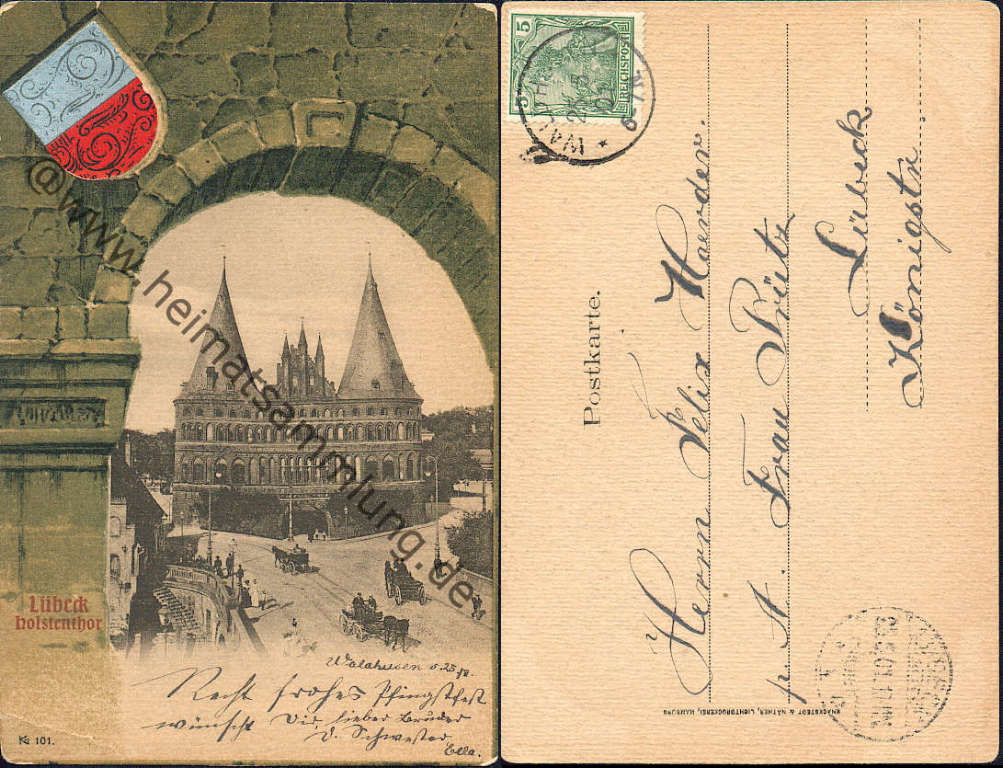 @www.heimatsammlung.de
Lübeck
Holstenthor
№ 101.
Recht frohes Pfingstfest
wünscht Dir lieber Bruder
D. Schwester
Ella.
5
REICHSPOST
Postkarte.
Herrn Felix Haerder.
p. A. Frau Prütz
Lübeck
Königstr.
KNACKSTEDT & NÄTHER, LICHTDRUCKEREI, HAMBURG